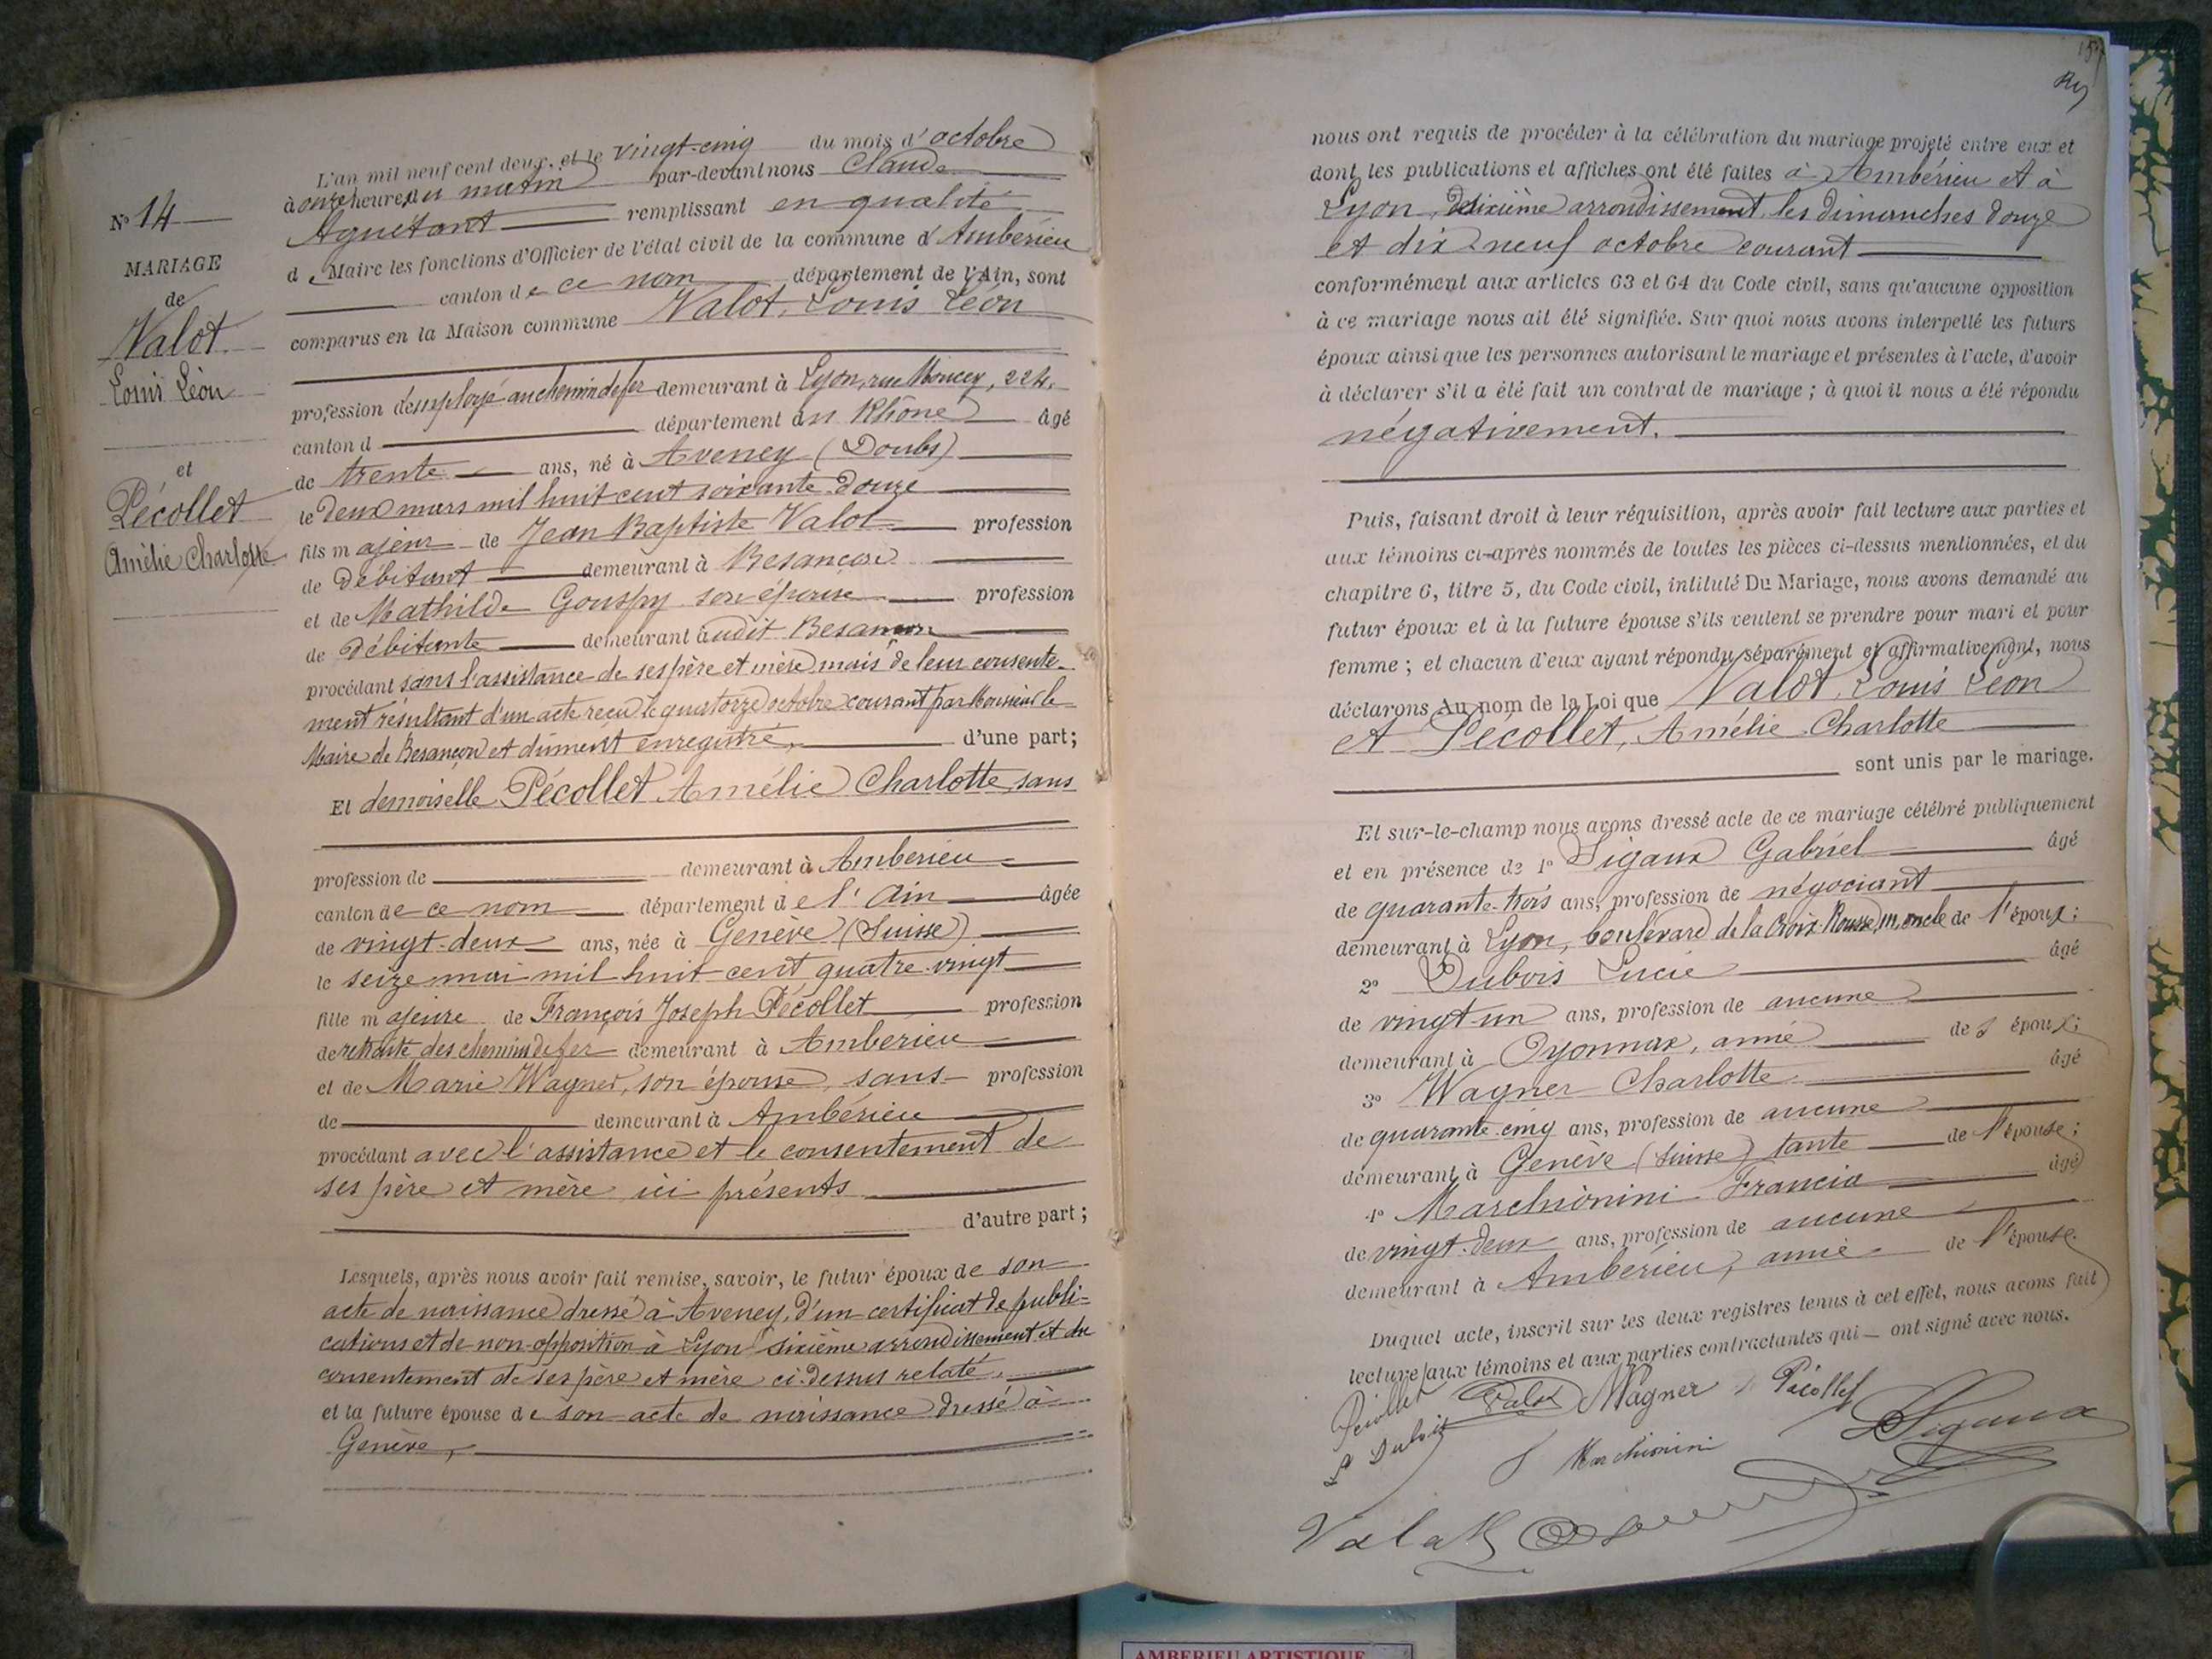 N° 14
MARIAGE
de
Valot
Louis Léon
et
Pécollet
Amélie Charlotte
L'an mil neuf cent deux, et le vingt-cinq du mois d'octobre
à onze heures du matin par-devant nous Claude
Aguétant remplissant en qualité
de Maire les fonctions d'Officier de l'état civil de la commune d'Ambérieu
canton de ce nom département de l'Ain, sont
comparus en la Maison commune Valot, Louis Léon
profession d'employé au chemin de fer demeurant à Lyon, rue Moncey, 224,
canton d département du Rhône âgé
de trente ans, né à Aveney (Doubs)
le deux mars mil huit cent soixante-douze
fils majeur de Jean Baptiste Valot profession
de débitant demeurant à Besançon
et de Mathilde Gouspy son épouse profession
de débitante demeurant audit Besançon
procédant sans l'assistance de ses père et mère mais de leur consente-
ment résultant d'un acte reçu le quatorze octobre courant par Monsieur le
Maire de Besançon et dûment enregistré, d'une part;
Et demoiselle Pécollet, Amélie Charlotte, sans
profession de demeurant à Ambérieu
canton de ce nom département de l'Ain âgée
de vingt-deux ans, née à Genève (Suisse)
le seize mai mil huit cent quatre-vingt
fille majeure de François Joseph Pécollet profession
de retraité des chemins de fer demeurant à Ambérieu
et de Marie Wagner, son épouse, sans profession
de demeurant à Ambérieu
procédant avec l'assistance et le consentement de
ses père et mère ici présents
d'autre part;
Lesquels, après nous avoir fait remise, savoir, le futur époux de son
acte de naissance dressé à Aveney, d'un certificat de publi-
cations et de non-opposition à Lyon sixième arrondissement et du
consentement de ses père et mère ci-dessus relaté,
et la future épouse de son acte de naissance dressé à
Genève,
nous ont requis de procéder à la célébration du mariage projeté entre eux et
dont les publications et affiches ont été faites à Ambérieu et à
Lyon, sixième arrondissement, les dimanches douze
et dix-neuf octobre courant
conformément aux articles 63 et 64 du Code civil, sans qu'aucune opposition
à ce mariage nous ait été signifiée. Sur quoi nous avons interpellé les futurs
époux ainsi que les personnes autorisant le mariage et présentes à l'acte, d'avoir
à déclarer s'il a été fait un contrat de mariage ; à quoi il nous a été répondu
négativement.
Puis, faisant droit à leur réquisition, après avoir fait lecture aux parties et
aux témoins ci-après nommés de toutes les pièces ci-dessus mentionnées, et du
chapitre 6, titre 5, du Code civil, intitulé Du Mariage, nous avons demandé au
futur époux et à la future épouse s'ils veulent se prendre pour mari et pour
femme ; et chacun d'eux ayant répondu séparément et affirmativement, nous
déclarons Au nom de la Loi que Valot, Louis Léon
et Pécollet, Amélie Charlotte
sont unis par le mariage.
Et sur-le-champ nous avons dressé acte de ce mariage célébré publiquement
et en présence de 1° Sigaux Gabriel âgé
de quarante-trois ans, profession de négociant
demeurant à Lyon, boulevard de la Croix-Rousse, oncle de l'époux;
2° Dubois Lucie âgé
de vingt-un ans, profession de aucune
demeurant à Oyonnax, amie des époux;
3° Wagner Charlotte âgé
de quarante-cinq ans, profession de aucune
demeurant à Genève (Suisse) tante de l'épouse;
4° Marchionini Francia âgé
de vingt-deux ans, profession de aucune
demeurant à Ambérieu, amie de l'épouse.
Duquel acte, inscrit sur les deux registres tenus à cet effet, nous avons fait
lecture aux témoins et aux parties contractantes qui ont signé avec nous.
Pécollet Valot Wagner Pécollet
L Dubois Marchionini Sigaux
AMBERIEU ARTISTIQUE